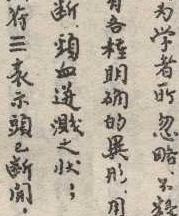 为学者所忽略,不
有各種明确的異形,用
断,頭血迸溅之状;
符三表示頭已断開,